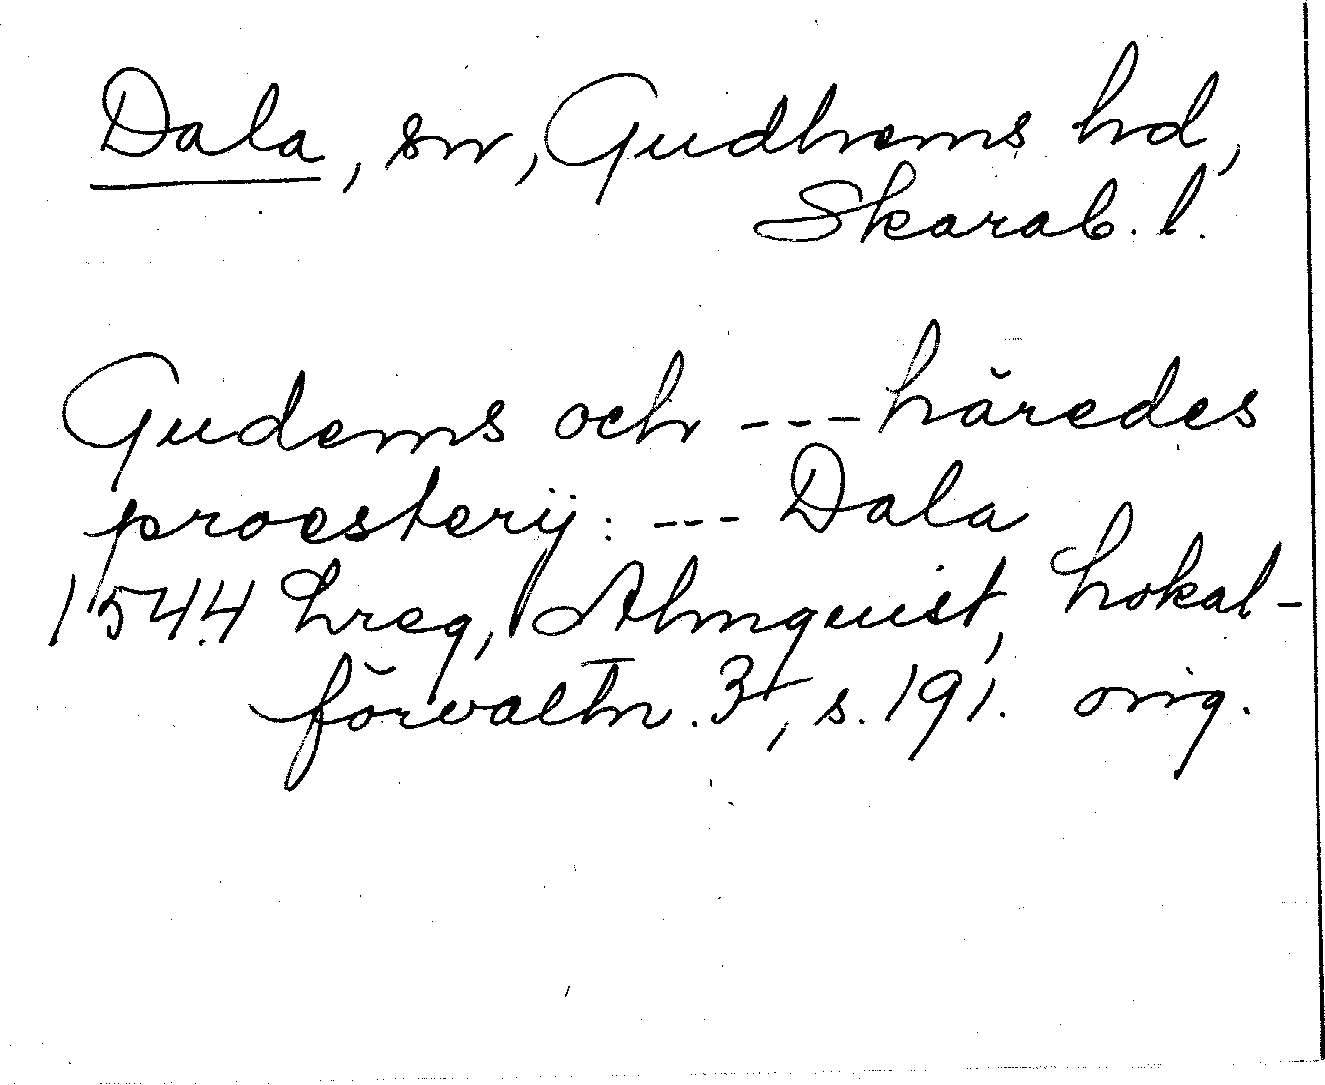 Dala, sn, Gudhems hd,
Skarab. l.
Gudems och --- häredes
proesterij: --- Dala
1544 Lreg, Almquist, Lokal-
förvaltn. 3, s. 191. orig.